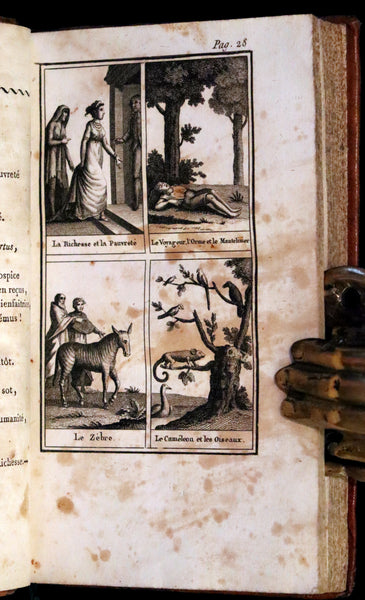 Pag. 28
uvreté
é.
rtus,
ospice
en reçus,
ienfaitrice
émus !
tôt.
sot,
umanité,
ichesse.—
La Richesse et la Pauvreté
Le Voyageur, l'Orme et le
Le Zèbre.
Le Caméléon et les Oiseaux.